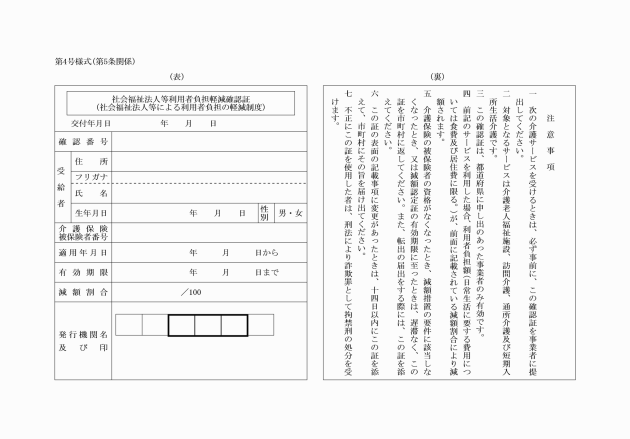 第4号様式(第5条関係)
(表)
社会福祉法人等利用者負担軽減確認証
(社会福祉法人等による利用者負担の軽減制度)
交付年月日 年 月 日
確認番号
受給者
住所
フリガナ
氏名
生年月日 年 月 日 性別 男・女
介護保険
被保険者番号
適用年月日 年 月 日から
有効期限 年 月 日まで
減額割合 /100
発行機関名
及び印
(裏)
注意事項
一 次の介護サービスを受けるときは、必ず事前に、この確認証を事業者に提
出してください。
二 対象となるサービスは介護老人福祉施設、訪問介護、通所介護及び短期入
所生活介護です。
三 この確認証は、都道府県に申し出のあった事業者のみ有効です。
四 前記のサービスを利用した場合、利用者負担額(日常生活に要する費用につ
いては食費及び居住費に限る。)が、前面に記載されている減額割合により減
額されます。
五 介護保険の被保険者の資格がなくなったとき、減額措置の要件に該当しな
くなったとき、又は減額認定証の有効期限に至ったときは、遅滞なく、この
証を市町村に返してください。また、転出の届出をする際には、この証を添
えてください。
六 この証の表面の記載事項に変更があったときは、十四日以内にこの証を添
えて、市町村にその旨を届け出てください。
七 不正にこの証を使用した者は、刑法により詐欺罪として拘禁刑の処分を受
けます。